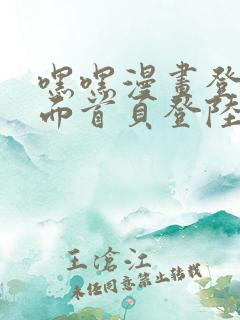 嘿嘿漫畫登
而首頁登陸
王滄江
未經同意禁止轉載